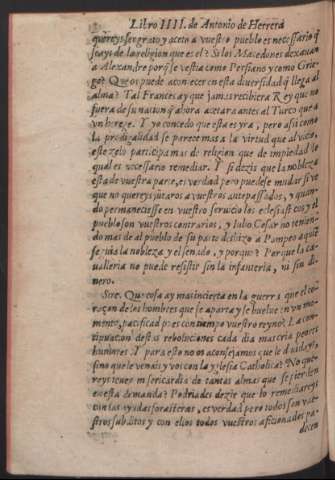 Libro IIII. de Antonio de Herrera
quereys ser grato y aceto a vuestro pueblo es necessario q̃
seays de la religion que es el? Si los Macedones dexauan
a Alexandre porq̃ se vestia como Persiano y como Grie-
go? Que os puede acontecer en esta diuersidad q̃ llega al
alma? Tal Frances ay que jamas recibiera Rey que no
fuera de su nacion q̃ ahora acetara antes al Turco que a
un herege. Y yo concedo que esta es yra, pero assi como
la prodigalidad se parece mas a la virtud que al vicio,
este zelo participa mas de religion que de impiedad la
qual es necessario remediar. Y si dezis que la nobleza
esta de vuestra parte, es verdad pero puedese mudar si ve
que no quereys imitaros a vuestros antepassados, y quan-
do permaneciesse en vuestro seruicio los eclesiasticos y el
pueblo son vuestros contrarios, y Julio Cesar no tenien-
do mas de al pueblo de su parte deshizo a Pompeo a quiẽ
seguia la nobleza y el senado, y porque? Porque la ca-
ualleria no puede resistir sin la infanteria, ni sin di-
nero.
Sire. Que cosa ay mas incierta en la guerra que el co-
raçon de los hombres que se aparta y se buelue en un mo-
mento, pacificad pues con tiempo vuestro reyno? La con-
tinuacion destas reboluciones cada dia mostrara peores
humores Y para esto no os aconsejamos que le diuidays
sino que le venais y vos con la yglesia Catholica? No que-
reys tener misericordia de tantas almas que se pierden
en esta demanda? Podriades dezir que lo remediareys
con las ayudas forasteras, es verdad pero todos son vue-
stros subditos y con ellos todos vuestros aficionados pa-
decen